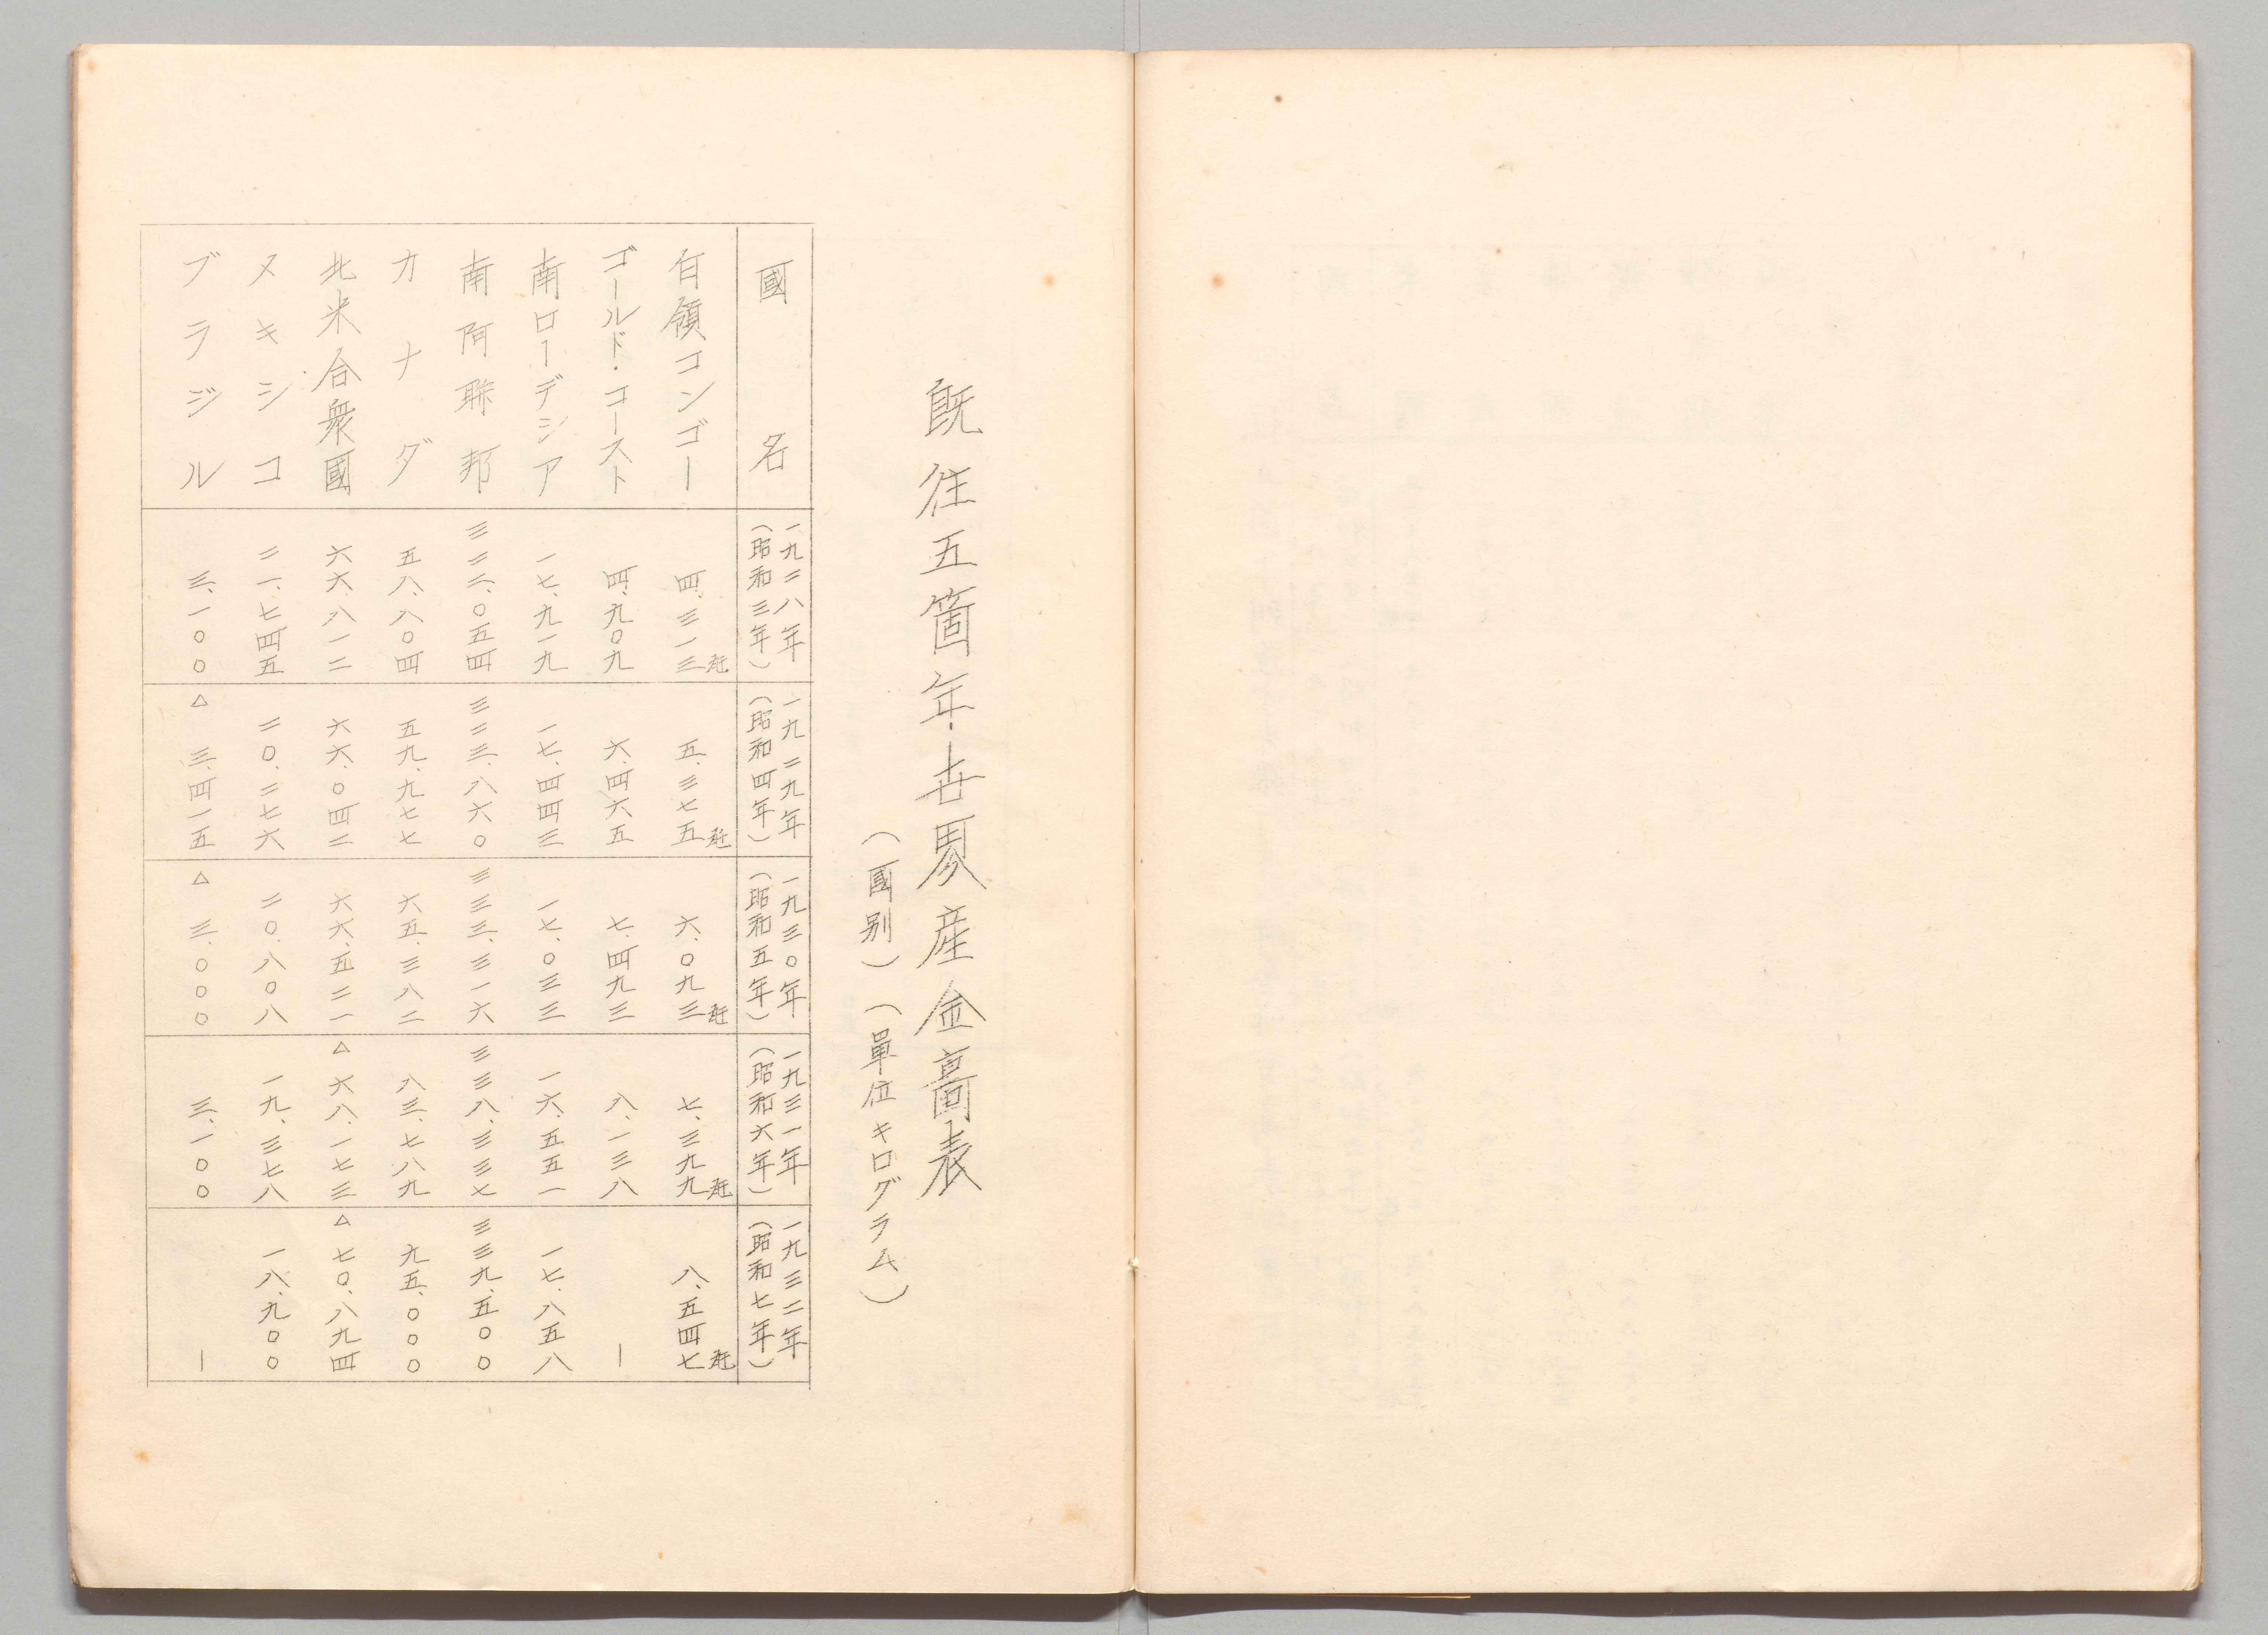 既往五箇年世界産金高表
（國別）（單位キログラム）
國名 一九二八年（昭和三年） 一九二九年（昭和四年） 一九三〇年（昭和五年） 一九三一年（昭和六年） 一九三二年（昭和七年）
白領コンゴー 四、三一三瓩 五、三七五瓩 六、〇九三瓩 七、三九九瓩 八、五四七瓩
ゴールド・コースト 四、九〇九 六、四六五 七、四九三 八、一三八 ―
南ローデシア 一七、九一九 一七、四四三 一七、〇三三 一六、五五一 一七、八五八
南阿聯邦 三二二、〇五四 三二三、八六〇 三三三、三一六 三三八、三三七 三三九、五〇〇
カナダ 五八、八〇四 五九、九七七 六五、三八二 八三、七八九 九五、〇〇〇
北米合衆國 六六、八一二 六六、〇四二 六六、五二一 △六八、一七三 △七〇、八九四
メキシコ 二一、七四五 二〇、二七六 二〇、八〇八 一九、三七八 一八、九〇〇
ブラジル 三、一〇〇 △三、四一五 △三、〇〇〇 三、一〇〇 ―